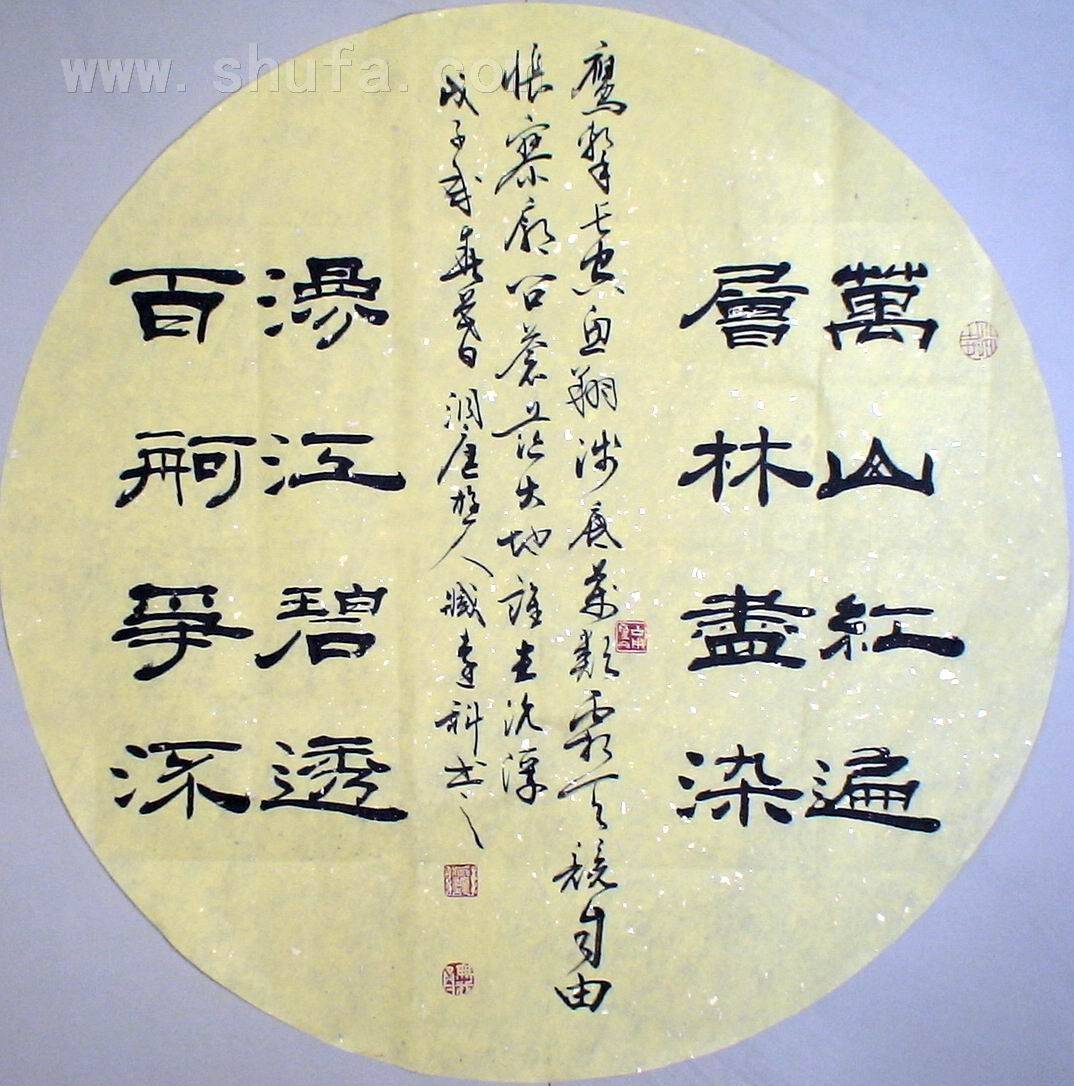 萬山紅遍
層林盡染
漫江碧透
百舸爭流
鷹擊长空鱼翔浅底萬類霜天競自由
悵寥廓问蒼茫大地誰主沉浮
戊子歲春暮日 人臧连科书之
www.shufa.com